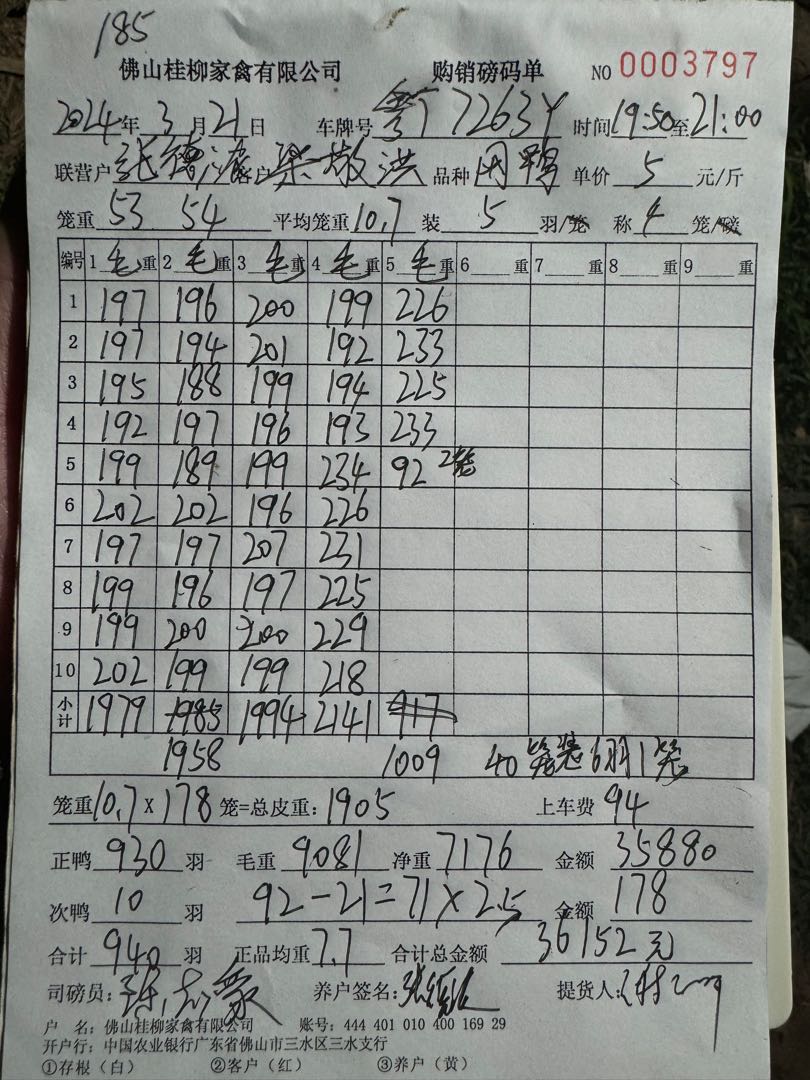 185
佛山桂柳家禽有限公司 购销磅码单 NO 0003797
2024年3月21日 车牌号 粤T7263Y 时间19:50至21:00
联营户 客户 品种 肉鸭 单价5元/斤
笼重 53 54 平均笼重10.7 装5羽/笼 称4笼/磅
编号 1毛重 2毛重 3毛重 4毛重 5毛重 6 重 7 重 8 重 9 重
1 197 196 200 199 226
2 197 194 201 192 233
3 195 188 199 194 225
4 192 197 196 193 233
5 199 189 199 234 92 2笼
6 202 202 196 226
7 197 197 207 231
8 199 196 197 225
9 199 200 200 229
10 202 199 199 218
小计 1979 1985 1994 2141 917
1958 1009 40笼装6羽1笼
笼重10.7X178笼=总皮重:1905 上车费94
正鸭930羽 毛重9081 净重7176 金额35880
次鸭10羽 92-21=71×2.5 金额178
合计940羽 正品均重7.7 合计总金额36152元
司磅员: 养户签名: 提货人:
户 名:佛山桂柳家禽有限公司 账号:444 401 010 400 169 29
开户行:中国农业银行广东省佛山市三水区三水支行
①存根(白) ②客户(红) ③养户(黄)